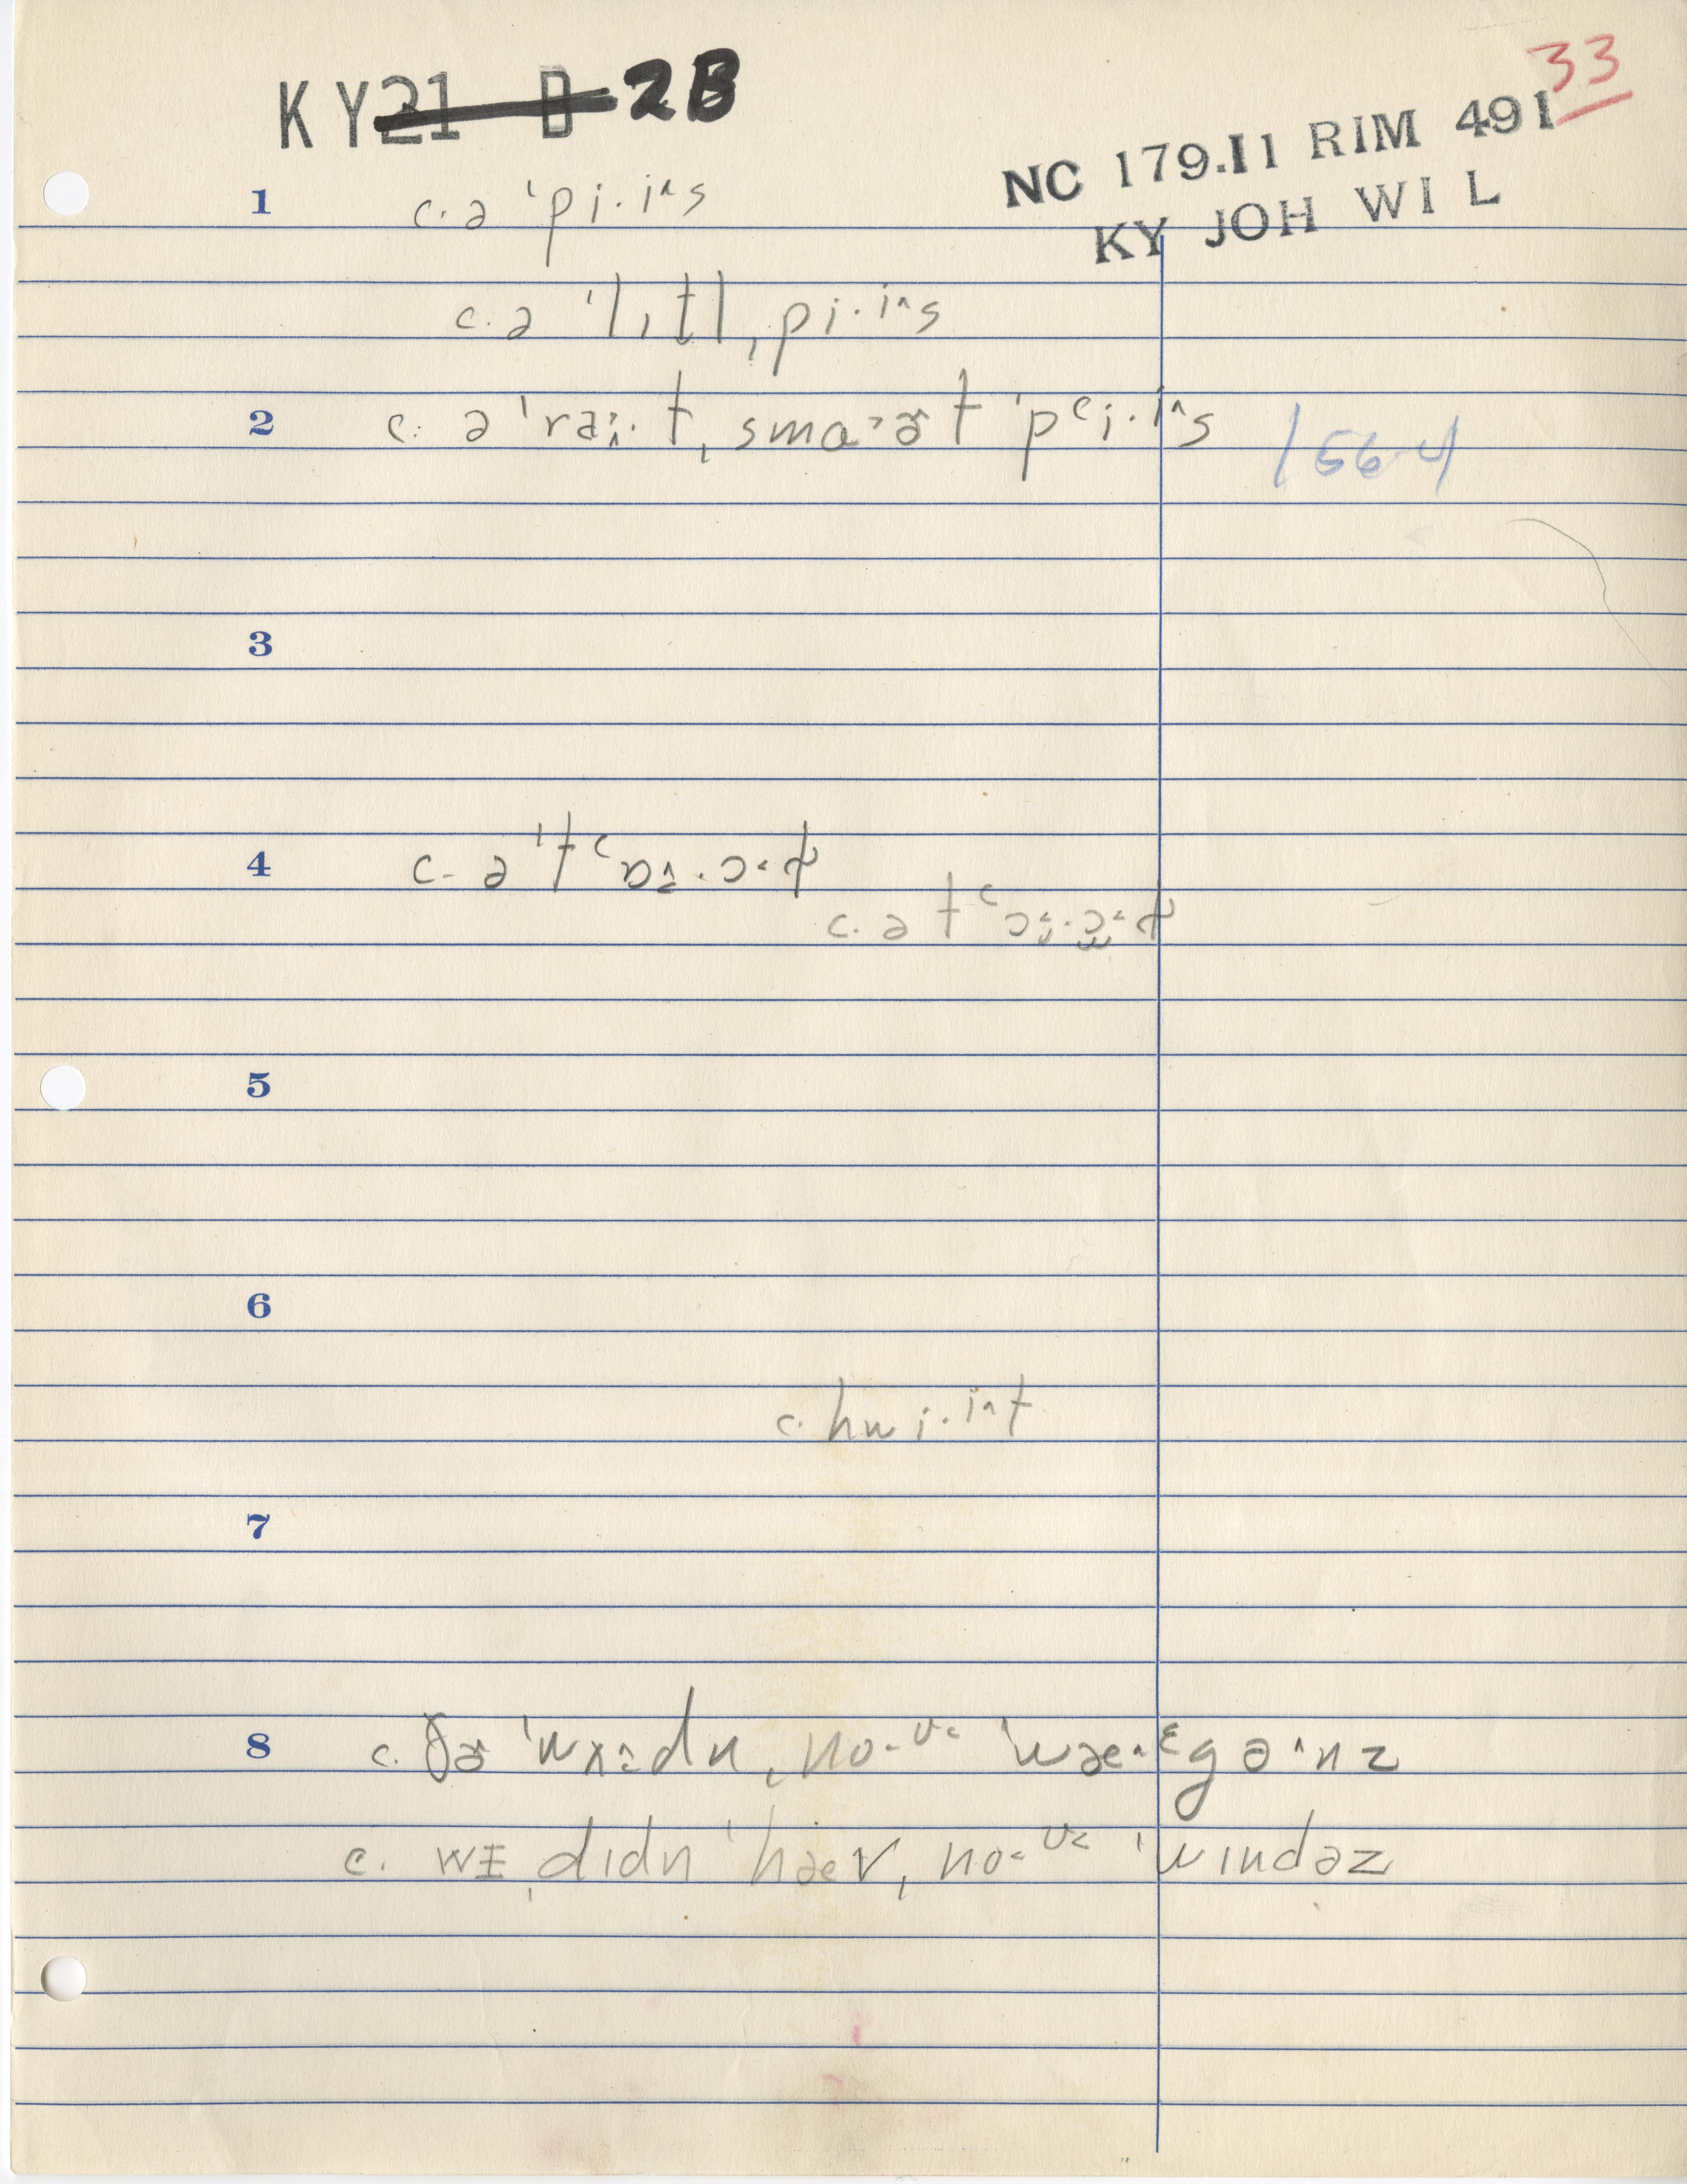 33
KY21 D 2B
NC 179.I1 RIM 491
KY JOH WIL
1 c. ə ˈpi·i˄s
c. ə ˈlɪtl ˌpi·i˄s
2 c: ə ˈra tˌ sma˃ɚt ˈpʻi·i˄s 156.4
3
4 c- ə ˈtʻɒ·ɔ˂
c. ə tʻɔ·ɔ˂
5
6
c. hwi·i˄t
7
8 c. ðɚ ˈwʌdn ˌno˗ʊ˂ ˈwæ˄ɛgə˄nz
c. wɪ ˌdɪdn ˈhæv ˌno˂ʊ˂ ˈwɪndəz